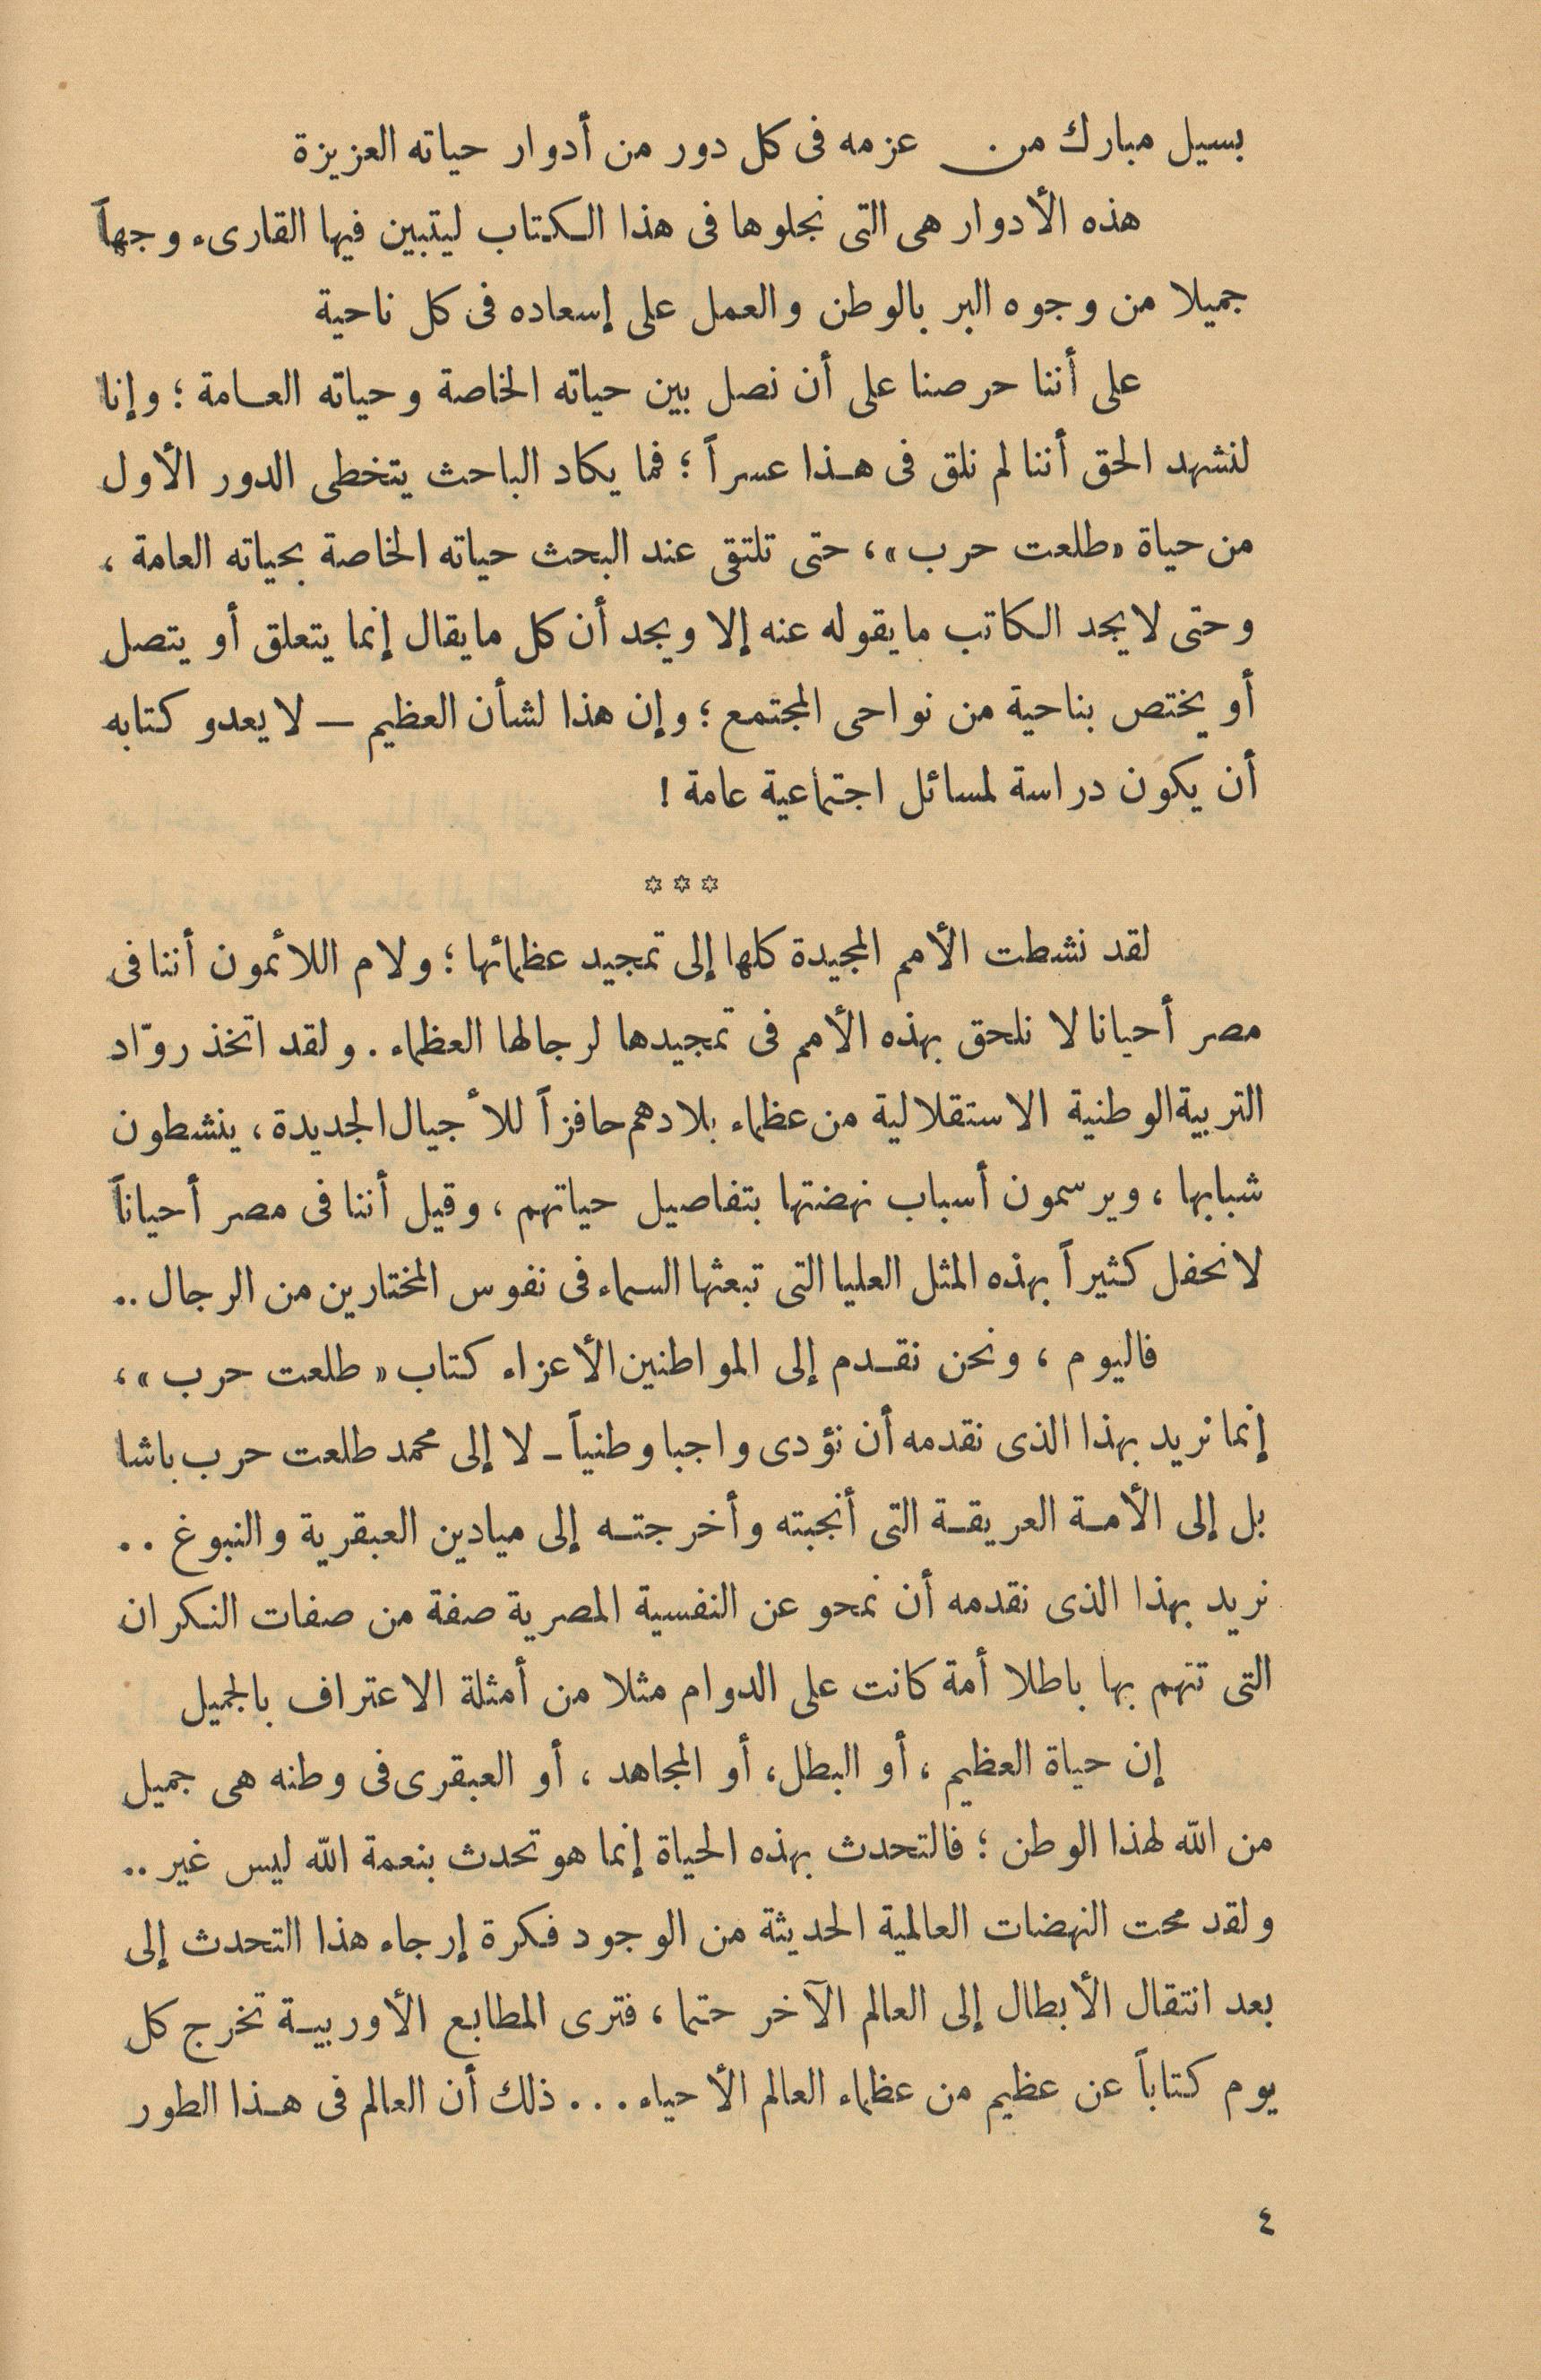 بسيل مبارك من عزمه فى كل دور من أدوار حياته العزيزة
هذه الأدوار هى التى نجلوها فى هذا الكتاب ليتبين فيها القارىء وجهاً
جميلا من وجوه البر بالوطن والعمل على إسعاده فى كل ناحية
على أننا حرصنا على أن نصل بين حياته الخاصة وحياته العامة ؛ وإنا
لنشهد الحق أننا لم نلق فى هذا عسراً ؛ فما يكاد الباحث يتخطى الدور الأول
من حياة «طلعت حرب» ، حتى تلتقى عند البحث حياته الخاصة بحياته العامة ،
وحتى لا يجد الكاتب ما يقوله عنه إلا ويجد أن كل ما يقال إنما يتعلق أو يتصل
أو يختص بناحية من نواحى المجتمع ؛ وإن هذا لشأن العظيم — لا يعدو كتابه
أن يكون دراسة لمسائل اجتماعية عامة !
***
لقد نشطت الأمم المجيدة كلها إلى تمجيد عظمائها ؛ ولام اللائمون أننا فى
مصر أحيانا لا نلحق بهذه الأمم فى تمجيدها لرجالها العظماء . ولقد اتخذ روّاد
التربية الوطنية الاستقلالية من عظماء بلادهم حافزاً للأجيال الجديدة ، ينشطون
شبابها ، ويرسمون أسباب نهضتها بتفاصيل حياتهم ، وقيل أننا فى مصر أحياناً
لا نحفل كثيراً بهذه المثل العليا التى تبعثها السماء فى نفوس المختارين من الرجال ..
فاليوم ، ونحن نقدم إلى المواطنين الأعزاء كتاب « طلعت حرب » ،
إنما نريد بهذا الذى نقدمه أن نؤدى واجبا وطنياً ـ لا إلى محمد طلعت حرب باشا
بل إلى الأمة العريقة التى أنجبته وأخرجته إلى ميادين العبقرية والنبوغ ..
نريد بهذا الذى نقدمه أن نمحو عن النفسية المصرية صفة من صفات النكران
التى تتهم بها باطلا أمة كانت على الدوام مثلا من أمثلة الاعتراف بالجميل
إن حياة العظيم ، أو البطل ، أو المجاهد ، أو العبقرى فى وطنه هى جميل
من الله لهذا الوطن ؛ فالتحدث بهذه الحياة إنما هو تحدث بنعمة الله ليس غير ..
ولقد محت النهضات العالمية الحديثة من الوجود فكرة إرجاء هذا التحدث إلى
بعد انتقال الأبطال إلى العالم الآخر حتما ، فترى المطابع الأوربية تخرج كل
يوم كتاباً عن عظيم من عظماء العالم الأحياء ... ذلك أن العالم فى هذا الطور
٤